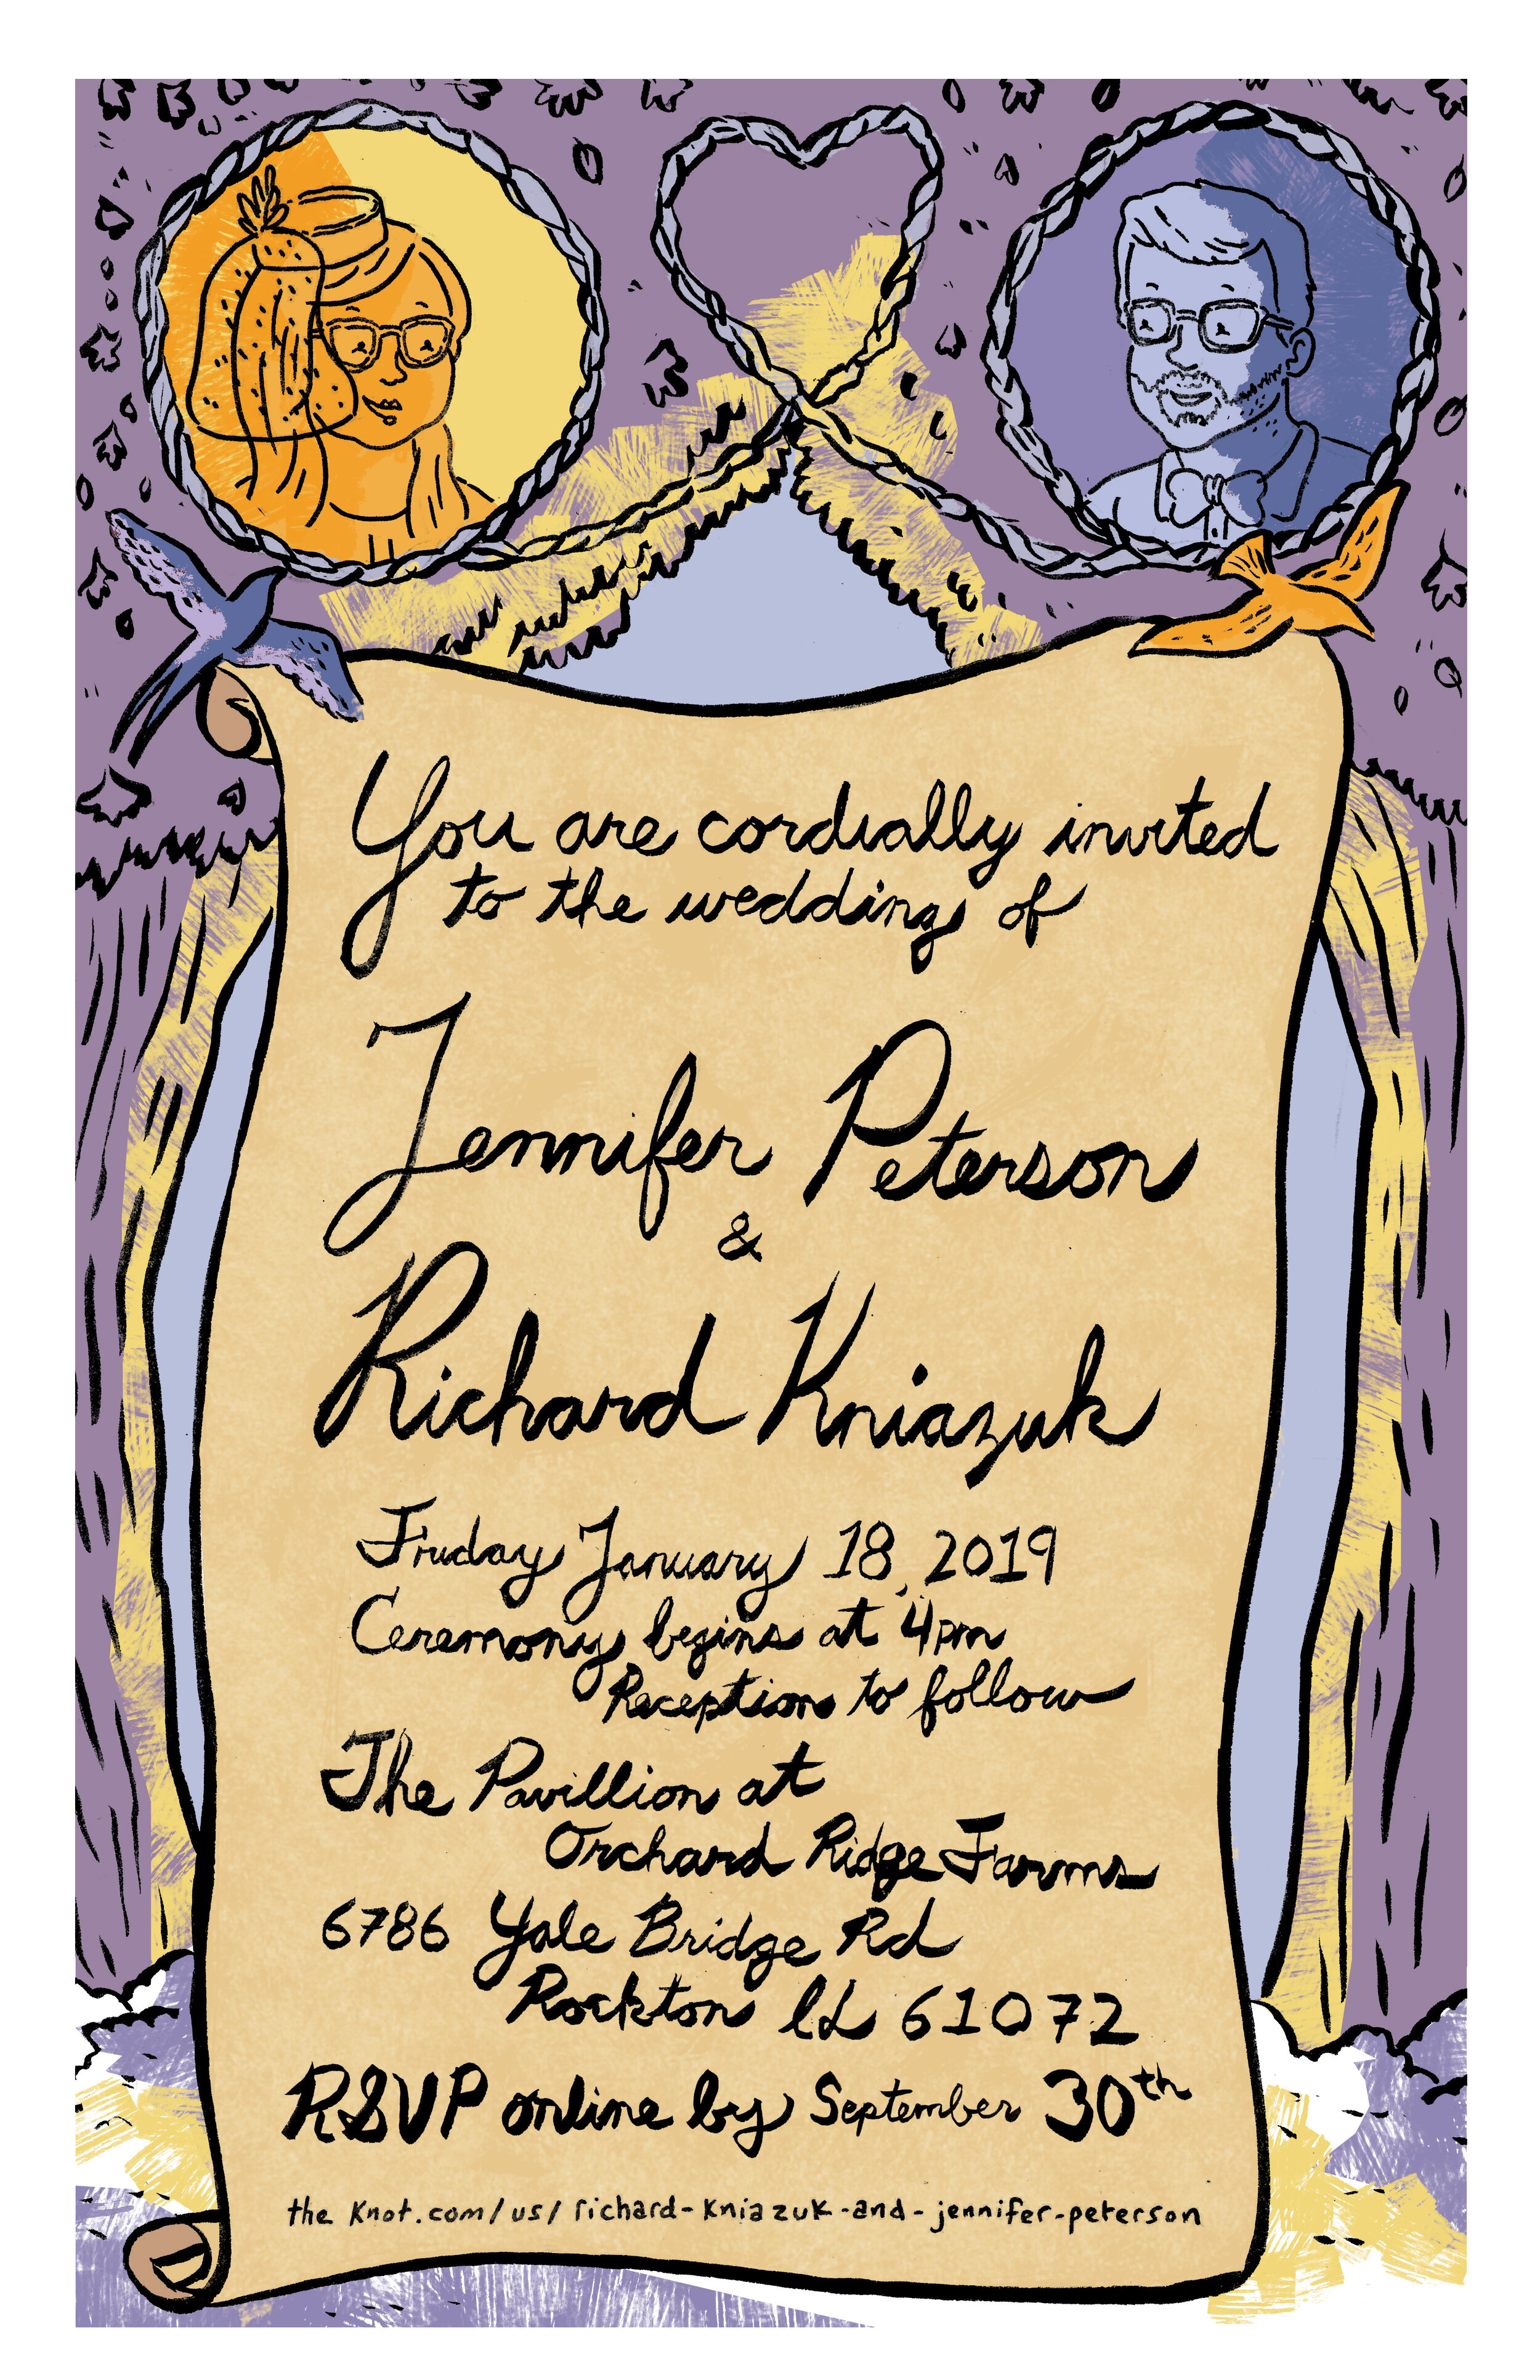 You are cordially invited
to the wedding of
Jennifer Peterson
&
Richard Kniazuk
Friday January 18, 2019
Ceremony begins at 4pm
Reception to follow
The Pavillion at
Orchard Ridge Farms
6786 Yale Bridge Rd
Rockton IL 61072
RSVP online by September 30th
the Knot.com/us/richard-Kniazuk-and-jennifer-peterson